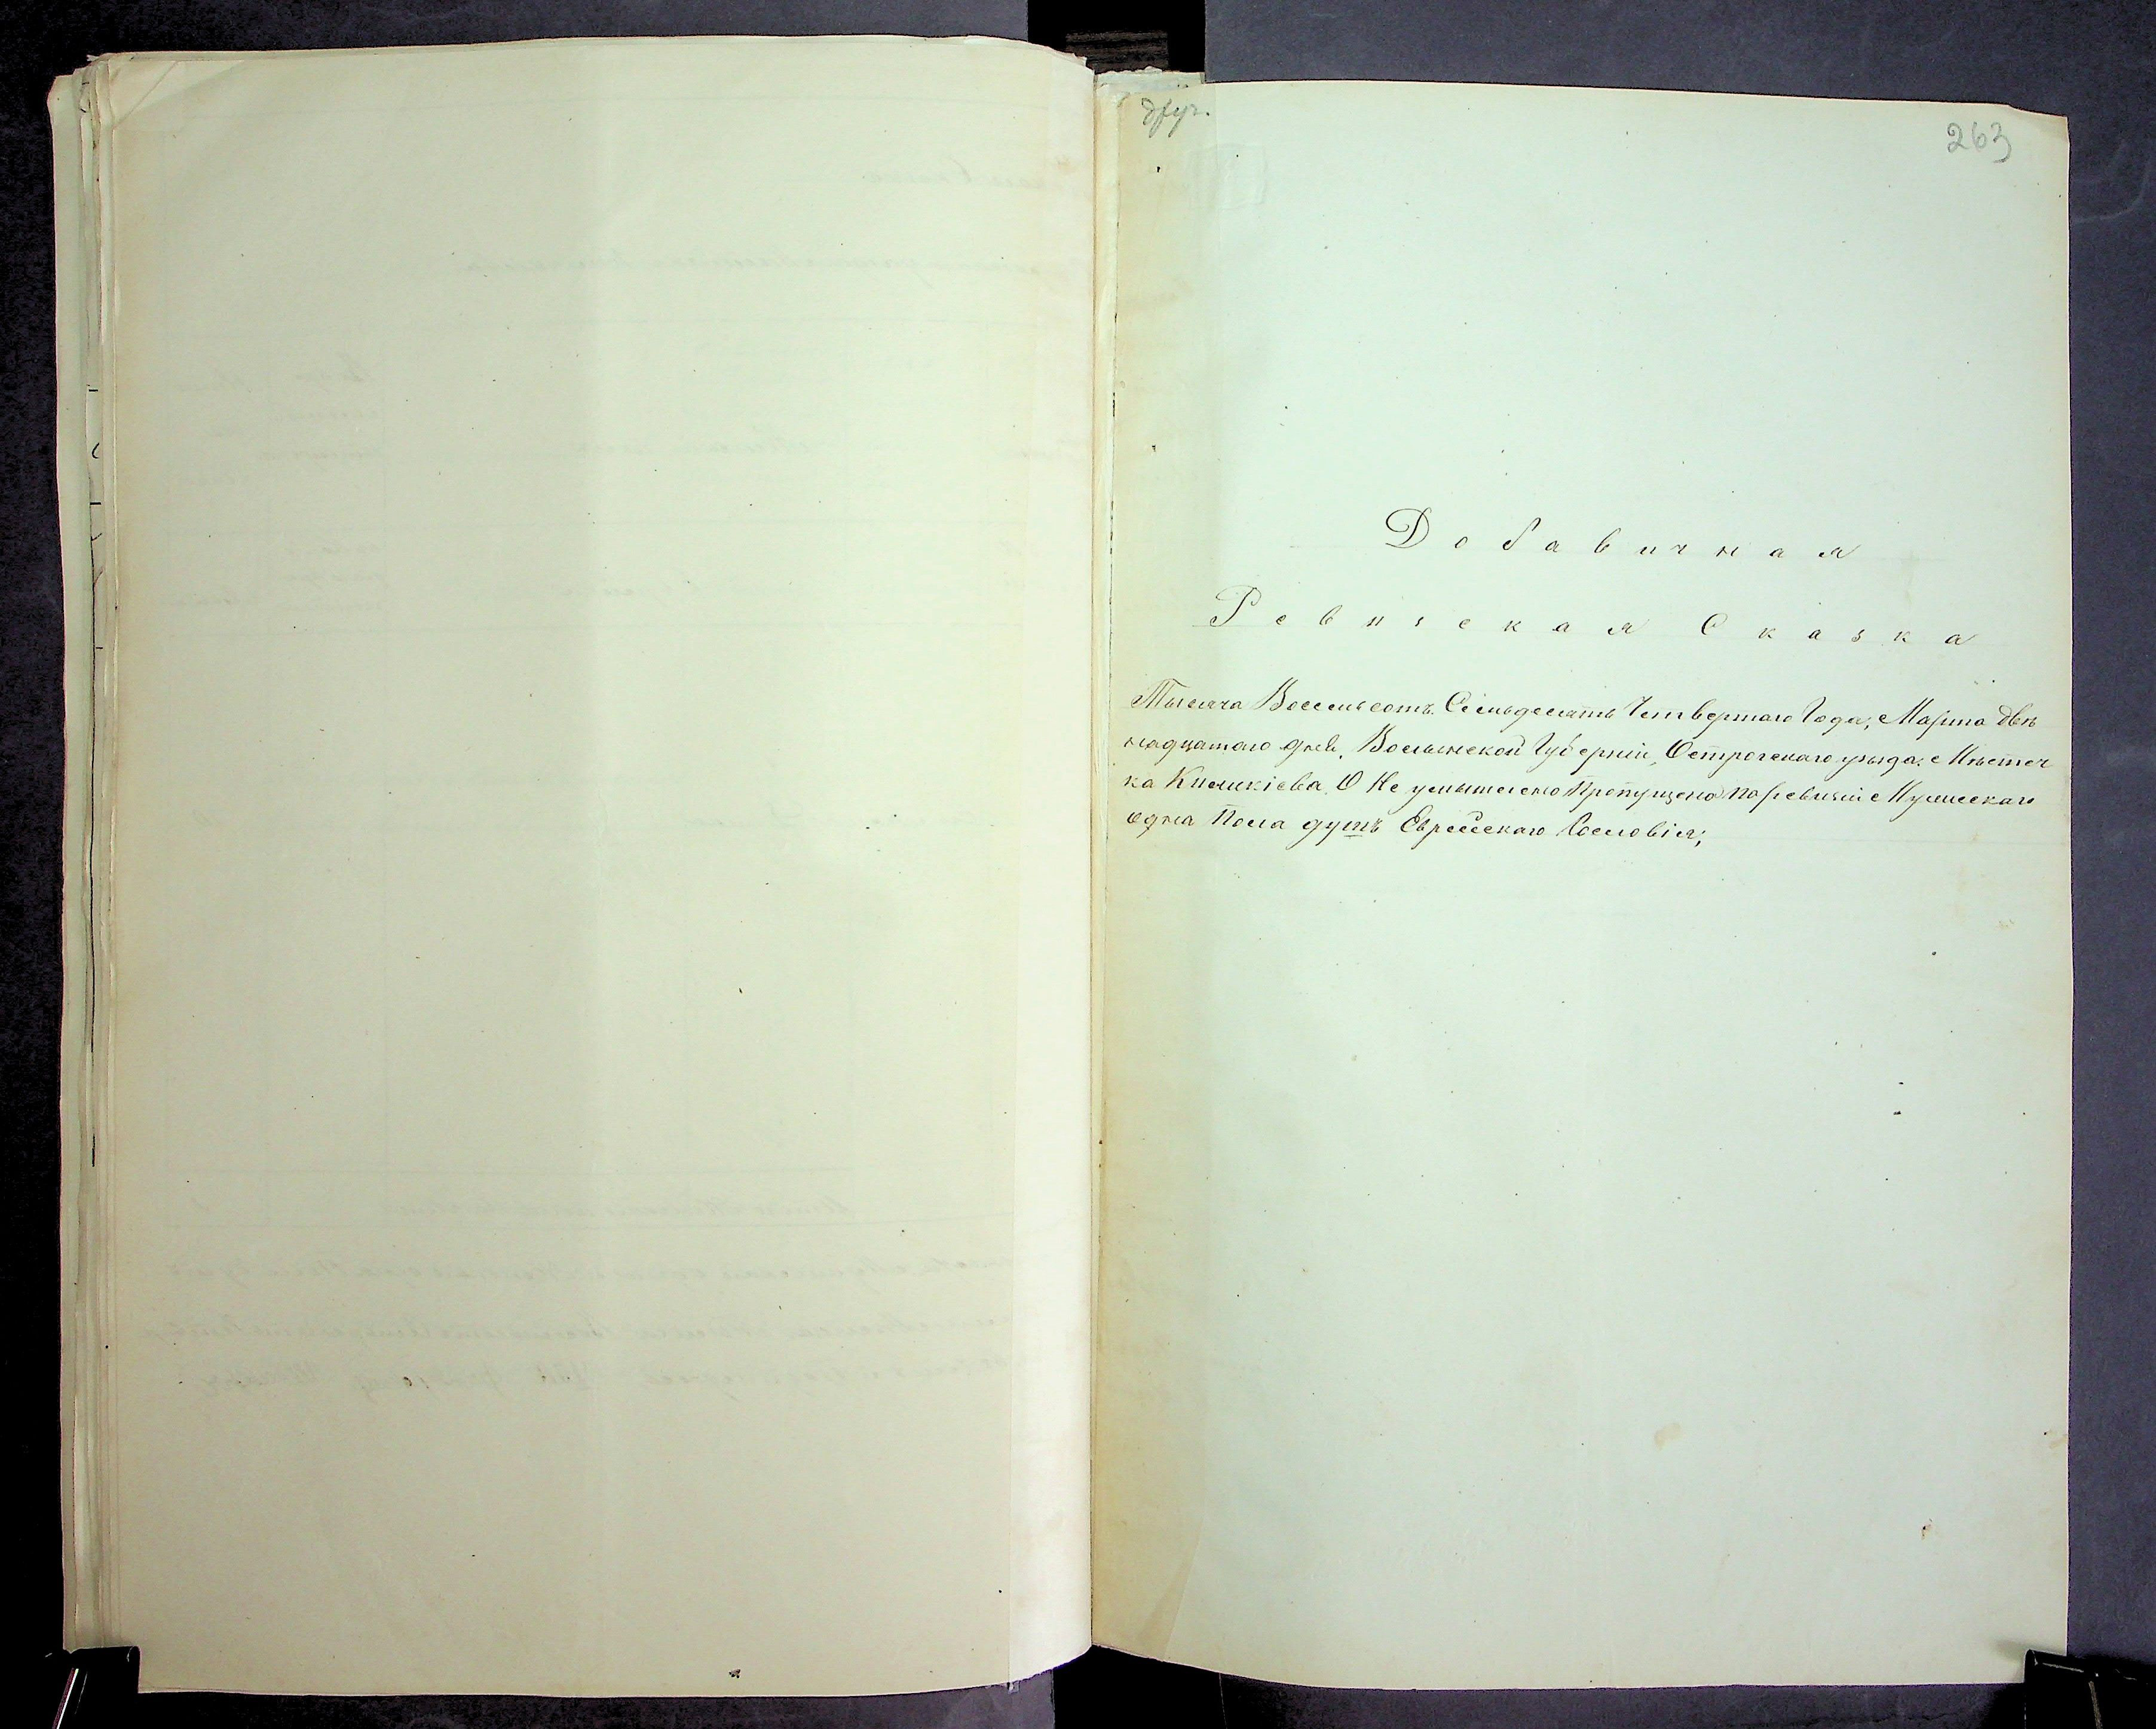 друг.
263
Добавичная
Ревизская Сказка
Тысяча Восемьсотъ Семьдесятъ Четвертаго Года, Марта двѣ
надцатаго дня, Волынской Губерніи, Острогскаго уѣзда, Мѣстеч
ка Киликіева О Не умышлено Пропущено по ревизіи Мужескаго
одна Пола душъ Еврейскаго Сословія;